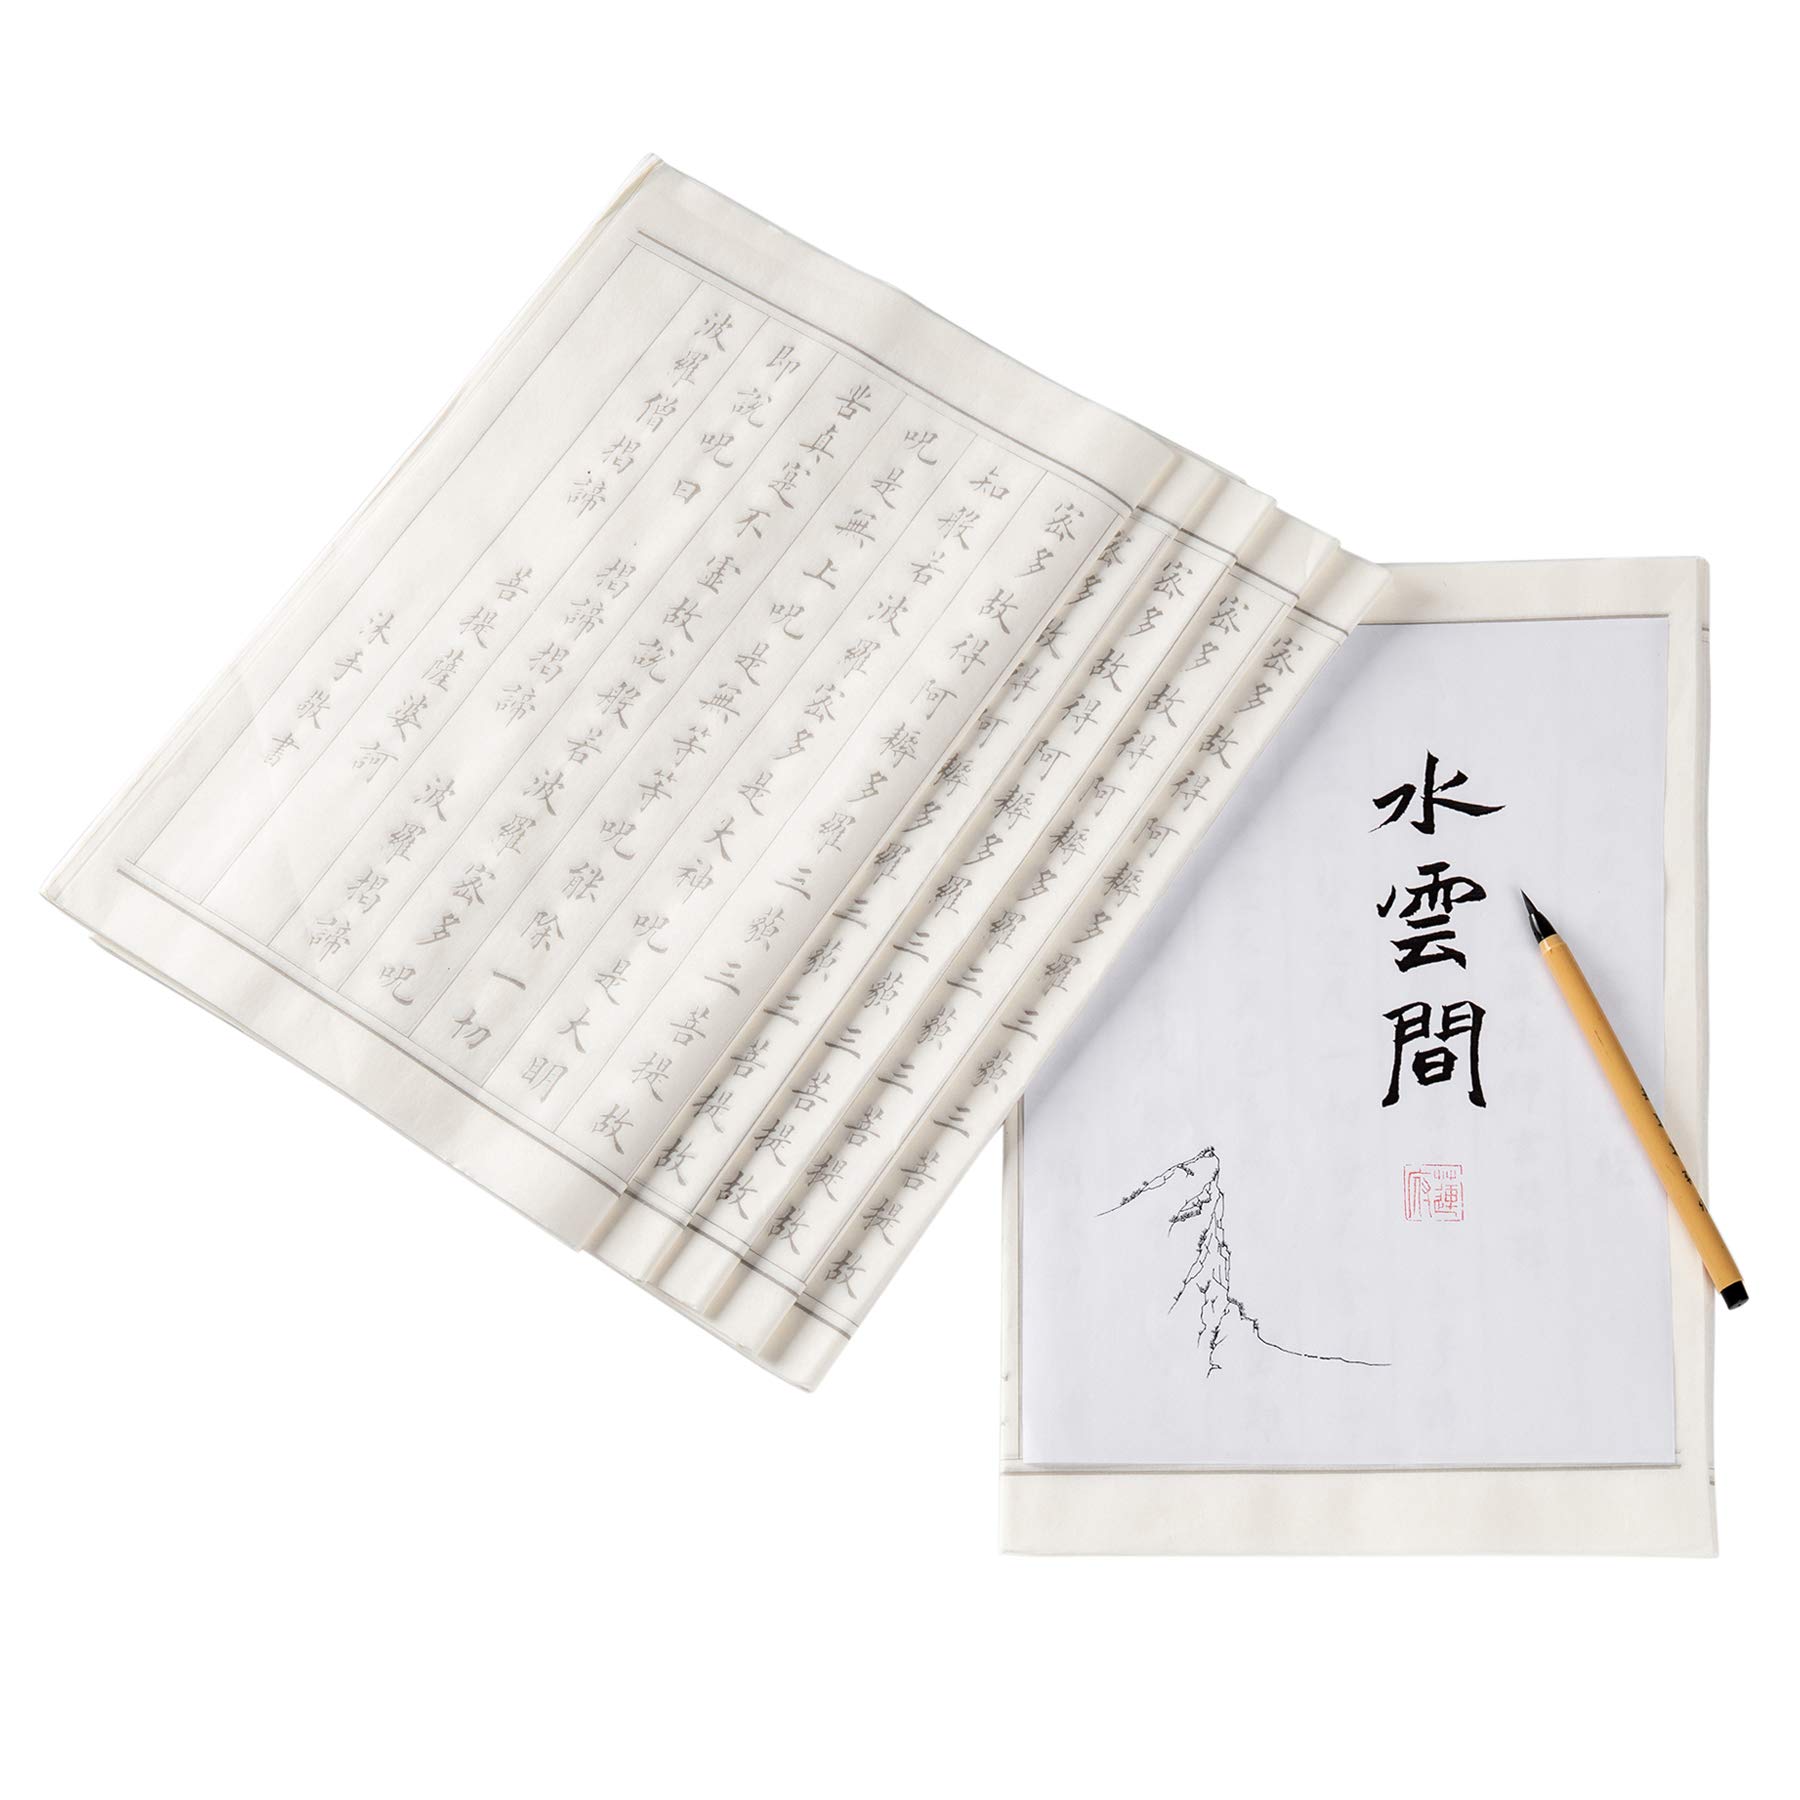 水雲間
密多故得阿耨多羅三藐三菩提故
密多故得阿耨多羅三藐三菩提故
密多故得阿耨多羅三藐三菩提故
密多故得阿耨多羅三藐三菩提故
密多故得阿耨多羅三藐三菩提故
知般若波羅密多是大神呪是大明
呪是無上呪是無等等呪能除一切
苦真寔不虛故說般若波羅密多呪
即說呪曰 揭諦揭諦 波羅揭諦
波羅僧揭諦 菩提薩婆訶
沐手敬書